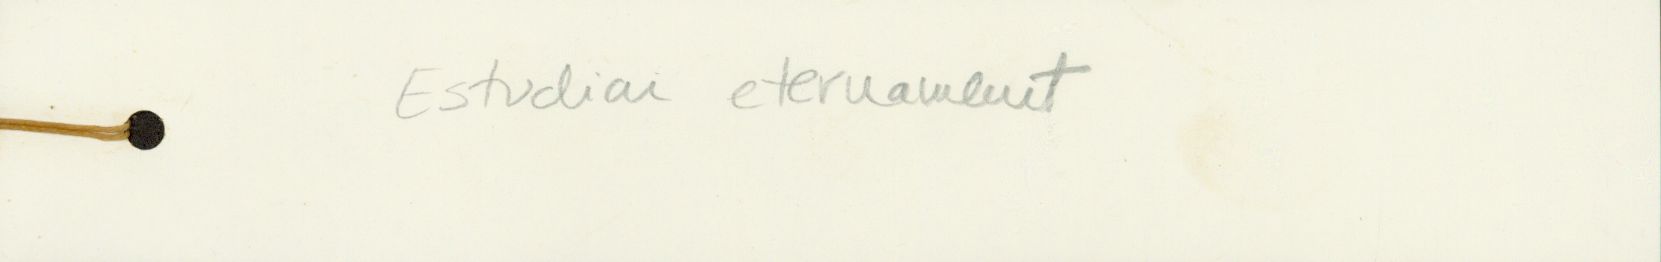 Estudiar eternament